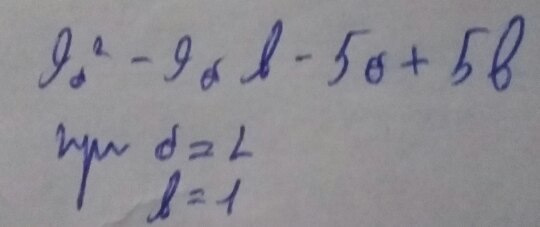 9a² - 9ab - 5a + 5b
при a = 2
b = 1